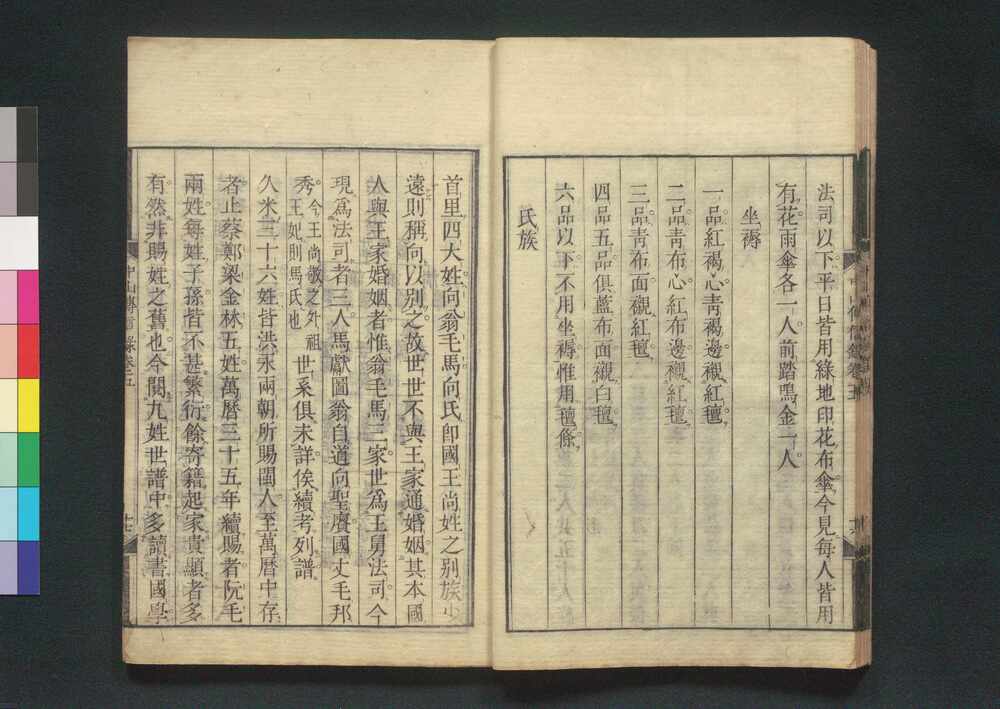 法司以下平日皆用綠地印花布傘今見每人皆用
有花雨傘各一人前踏鳴金一人
坐褥
一品紅褐心靑褐邊襯紅氊
二品靑布心紅布邊襯紅氊
三品靑布面襯紅氊
四品五品俱藍布面襯白氊
六品以下不用坐褥惟用氊條
氏族
首里四大姓向翁毛馬向氏卽國王尚姓之別族少
遠則稱向以別之故世世不與王家通婚姻其本國
人與王家婚姻者惟翁毛馬三家世爲王舅法司今
現爲法司者三人馬獻圖翁自道向聖賡國丈毛邦
秀今王尚敬之外祖
王妃則馬氏也
世系俱未詳俟續考列譜
久米三十六姓皆洪永兩朝所賜閩人至萬曆中存
者止蔡鄭梁金林五姓萬曆三十五年續賜者阮毛
兩姓每姓子孫皆不甚繁衍餘寄籍起家貴顯者多
有然非賜姓之舊也今閱九姓世譜中多讀書國學
中山傳信錄卷五
十七